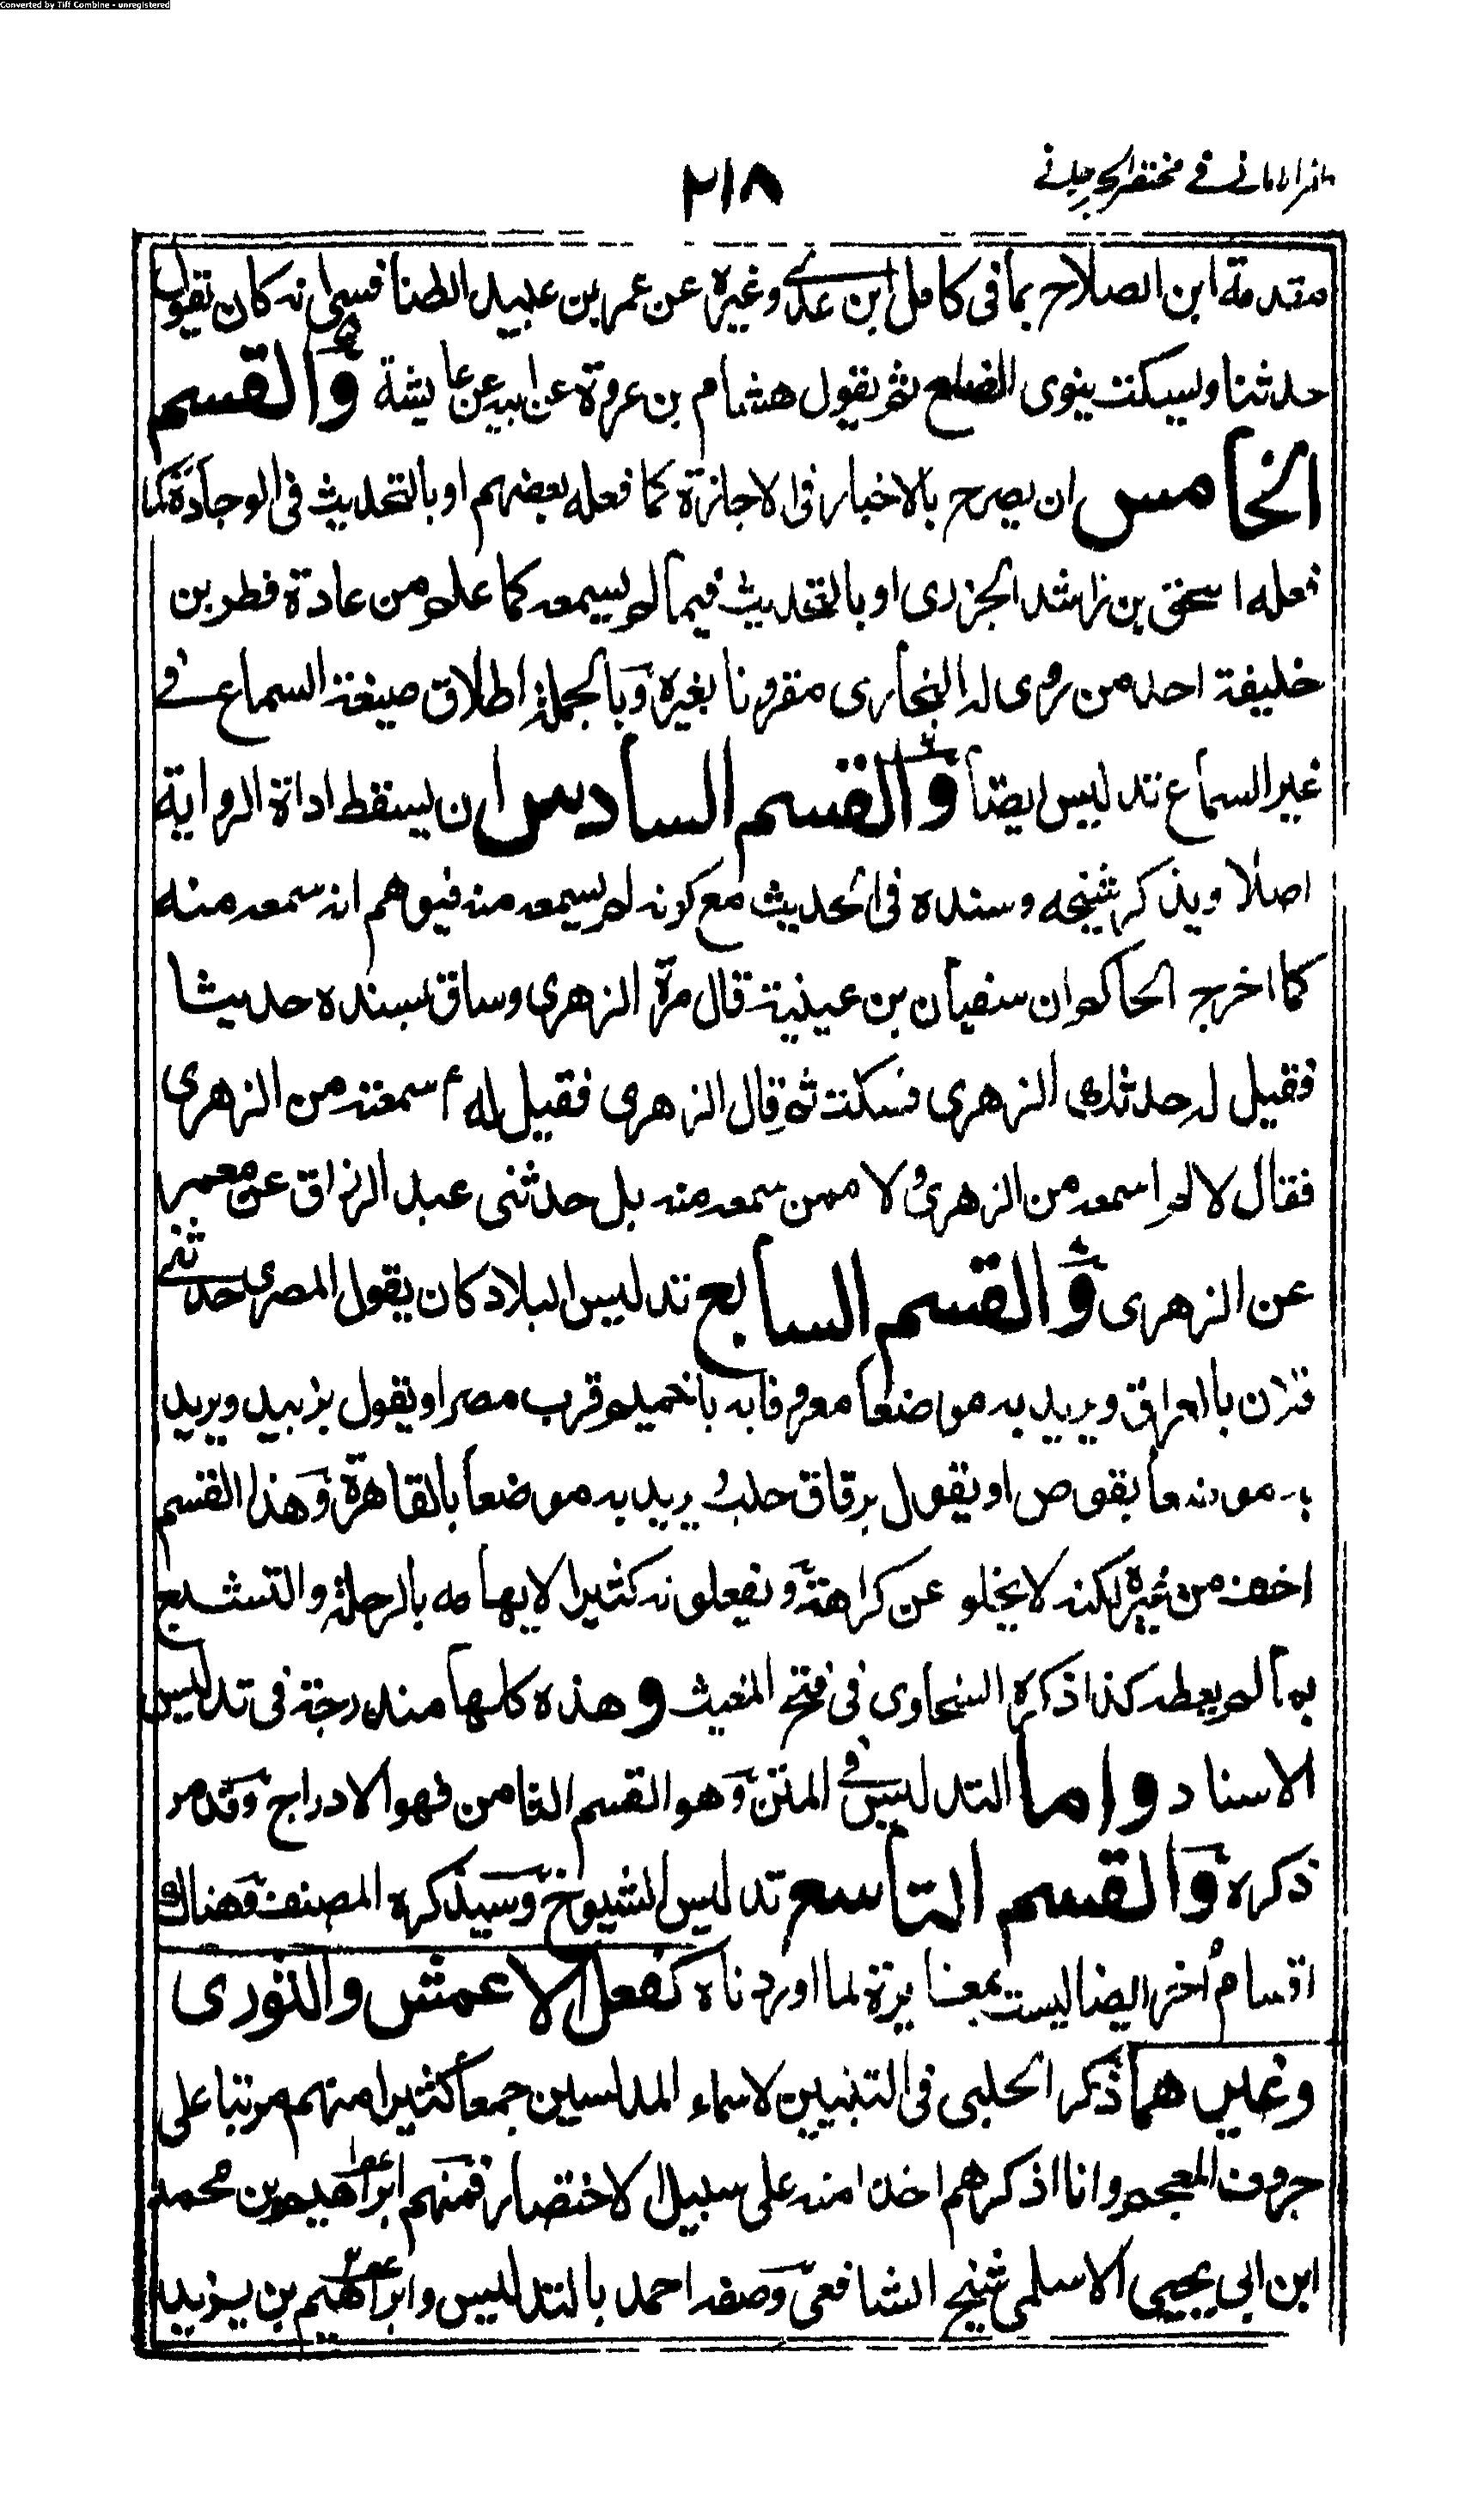 Converted by Tiff Combine - unregistered
ظفر الامانى فى مختصر الجرجانى
٢١٨
مقدمة ابن الصلاح بما فى كامل ابن عدى وغيره عن عمر بن عبيد الطنافسى انه كان يقول
حدثنا ويسكت ينوى القطع ثم يقول هشام بن عروة عن ابيه عن عايشة والقسم
الخامس ان يصرح بالاخبار فى الاجازة كما فعله بعضهم او بالتحديث فى الوجادة كما
فعله اسحق بن راشد الجزرى او بالتحديث فيما لم يسمعه كما علم من عادة فطر بن
خليفة احد من روى له البخارى مقرونا بغيره وبالجملة اطلاق صيغة السماع فى
غير السماع تدليس ايضا والقسم السادس ان يسقط اداة الرواية
اصلا ويذكر شيخه وسنده فى الحديث مع كونه لم يسمعه منه فيوهم انه سمعه منه
كما اخرج الحاكم ان سفيان بن عيينة قال مرة الزهرى وساق بسنده حديثا
فقيل له حدثك الزهرى فسكت ثم قال الزهرى فقيل له ء سمعته من الزهرى
فقال لا لم اسمعه من الزهرى ولا ممن سمعه منه بل حدثنى عبد الرزاق عن معمر
عن الزهرى والقسم السابع تدليس البلاد كان يقول المصرى حدثنى
فلان بالعراق ويريد به موضعا معروفا به باخميم قرب مصر او يقول بزبيد ويريد
به موضعا بقوص او يقول بزقاق حلب يريد به موضعا بالقاهرة وهذا القسم
اخف من غيره لكنه لا يخلو عن كراهة ويفعلونه كثيرا لايهامه بالرحلة والتشبع
بما لم يعطه كذا ذكره السخاوى فى فتح المغيث وهذه كلها مندرجة فى تدليس
الاسناد واما التدليس فى المتن وهو القسم الثامن فهو الادراج وقد مر
ذكره والقسم التاسع تدليس الشيوخ وسيذكره المصنف وهناك
اقسام اخر ايضا ليست بمغايرة لما اوردناه كفعل الاعمش والثورى
وغيرهما ذكر الحلبى فى التبيين لاسماء المدلسين جمعا كثيرا منهم مرتبا على
حروف المعجم وانا اذكرهم اخذا منه على سبيل الاختصار فمنهم ابراهيم بن محمد
ابن ابى يحيى الاسلمى شيخ الشافعى وصفه احمد بالتدليس وابراهيم بن يزيد